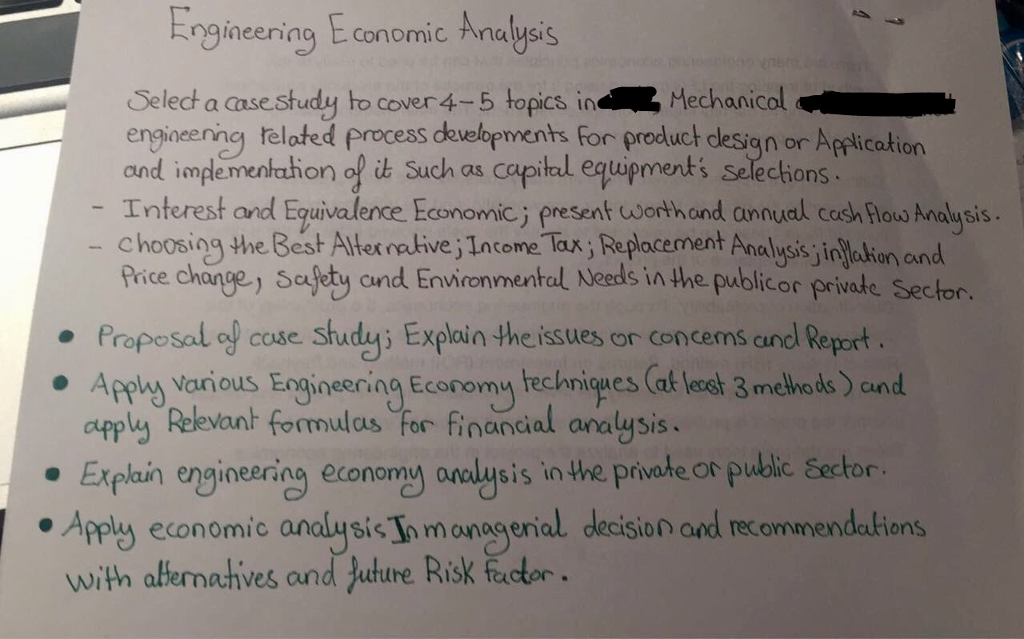 Engineering Economic Analysis
Select a case study to cover 4-5 topics in Mechanical
engineering related process developments for product design or Application
and implementation of it such as capital equipment's selections.
- Interest and Equivalence Economic; present worth and annual cash flow Analysis.
- Choosing the Best Alternative; Income Tax; Replacement Analysis; inflation and
Price change, Safety and Environmental Needs in the public or private Sector.
• Proposal of case study; Explain the issues or concerns and Report.
• Apply various Engineering Economy techniques (at least 3 methods) and
apply Relevant formulas for financial analysis.
• Explain engineering economy analysis in the private or public sector.
• Apply economic analysis In managerial decision and recommendations
with alternatives and future Risk factor.